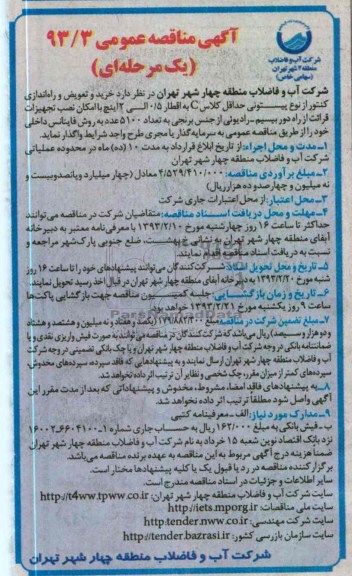 شرکت آب و فاضلاب
منطقه ۴ شهر تهران
(سهامی خاص)
آگهی مناقصه عمومی ۹۳/۳
(یک مرحله‌ای)
شرکت آب و فاضلاب منطقه چهار شهر تهران در نظر دارد خرید و تعویض و راه‌اندازی
کنتور از نوع پیستونی حداقل کلاس C به اقطار ۰/۵ الی ۲ اینچ با امکان نصب تجهیزات
قرائت از راه دور بیسیم - رادیویی از جنس برنجی به تعداد ۵۱۰۰ عدد به روش فاینانس داخلی
خود را از طریق مناقصه عمومی به سرمایه‌گذار یا مجری طرح واجد شرایط واگذار نماید.
۱- مدت و محل اجراء: از تاریخ ابلاغ قرارداد به مدت ۱۰ (ده) ماه در محدوده عملیاتی
شرکت آب و فاضلاب منطقه چهار شهر تهران
۲- مبلغ برآوردی مناقصه: ۴/۵۲۹/۴۱۰/۰۰۰ معادل (چهار میلیارد و پانصد و بیست و
نه میلیون و چهارصد و ده هزار ریال)
۳- محل اعتبار: از محل اعتبارات جاری شرکت
۴- مهلت و محل دریافت اسناد مناقصه: متقاضیان شرکت در مناقصه می‌توانند
حداکثر تا ساعت ۱۶ روز چهارشنبه مورخ ۱۳۹۳/۲/۱۰ با معرفی‌نامه معتبر به دبیرخانه
آبفای منطقه چهار شهر تهران به نشانی خ بهشت، ضلع جنوبی پارک‌شهر مراجعه و
نسبت به دریافت اسناد مناقصه اقدام نمایند.
۵- تاریخ و محل تحویل اسناد: شرکت‌کنندگان می‌توانند پیشنهادهای خود را تا ساعت ۱۶ روز
شنبه مورخ ۱۳۹۳/۲/۲۰ به دبیرخانه آبفای منطقه چهار شهر تهران در قبال اخذ رسید تحویل نمایند.
۶- تاریخ و زمان بازگشایی: جلسه کمیسیون مناقصه جهت بازگشایی پاکت‌ها
ساعت ۹ روز یکشنبه مورخ ۱۳۹۳/۲/۲۱ خواهد بود.
۷- مبلغ تضمین شرکت در مناقصه: مبلغ ۱۷۹/۸۸۲/۳۰۰ (یکصد و هفتاد و نه میلیون و هشتصد و هشتاد
و دو هزار و سیصد) ریال می‌باشد که شرکت‌کنندگان در مناقصه می‌توانند به صورت فیش واریزی نقدی و یا
ضمانتنامه بانکی در وجه شرکت آب و فاضلاب منطقه چهار شهر تهران و یا چک بانکی تضمینی در وجه شرکت
آب و فاضلاب منطقه چهار شهر تهران ارسال نمایند و به پیشنهادهای که فاقد سپرده، سپرده‌های مخدوش،
سپرده‌های کمتر از میزان مقرر، چک شخصی و نظایر آن ترتیب اثر داده نخواهد شد.
۸- به پیشنهادهای فاقد امضاء، مشروط، مخدوش و پیشنهاداتی که بعد از مدت مقرر این
آگهی واصل شود مطلقا ترتیب اثر داده نخواهد شد.
۹- مدارک مورد نیاز: الف - معرفینامه کتبی
ب - فیش بانکی به مبلغ ۱۶۲/۰۰۰ ریال به حساب جاری شماره ۱-۶۶۰۴۱۰۰-۲-۱۶۰
نزد بانک اقتصاد نوین شعبه ۱۵ خرداد به نام شرکت آب و فاضلاب منطقه چهار شهر تهران
ضمنا هزینه درج آگهی مربوط به این مناقصه به عهده برنده مناقصه می‌باشد.
برگزار کننده مناقصه در رد یا قبول یک یا کلیه پیشنهادها مختار است.
سایر اطلاعات و جزئیات در اسناد مناقصه مندرج است.
سایت شرکت آب و فاضلاب منطقه چهار شهر تهران: http://t4ww.tpww.co.ir
سایت ملی مناقصات: http://iets.mporg.ir
سایت شرکت مهندسی: http.tender.nww.co.ir
سایت سازمان بازرسی کشور: http://tender.bazrasi.ir
شرکت آب و فاضلاب منطقه چهار شهر تهران